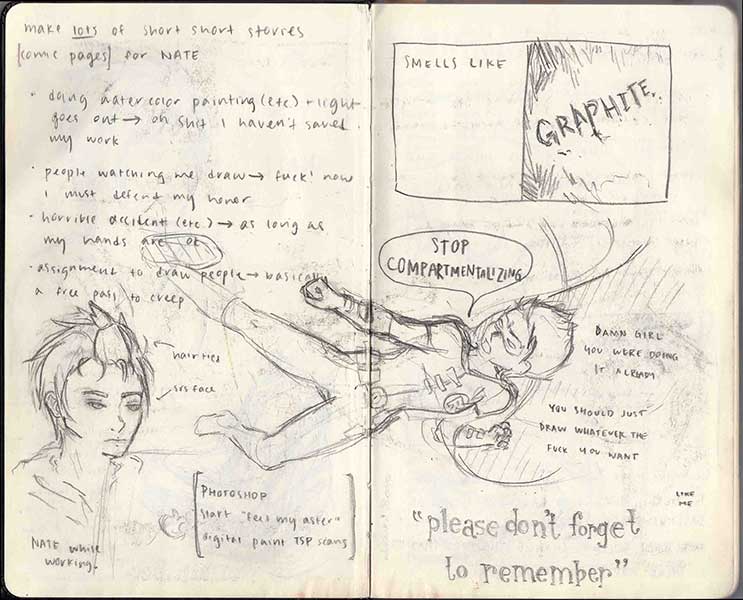 make lots of short short stories
[comic pages] for NATE
· doing watercolor painting (etc) + light
goes out → oh shit I haven't saved
my work
· people watching me draw → fuck! now
I must defend my honor
· horrible accident (etc.) → as long as
my hands are ok
· assignment to draw people → basically
a free pass to creep
hair tied
srs face
NATE while
working.
PHOTOSHOP
start "feel my aster"
digital paint TSP scans
SMELLS LIKE
GRAPHITE.
STOP
COMPARTMENTALIZING
DAMN GIRL
YOU WERE DOING
IT ALREADY
YOU SHOULD JUST
DRAW WHATEVER THE
FUCK YOU WANT
LIKE
ME
"please don't forget
to remember"